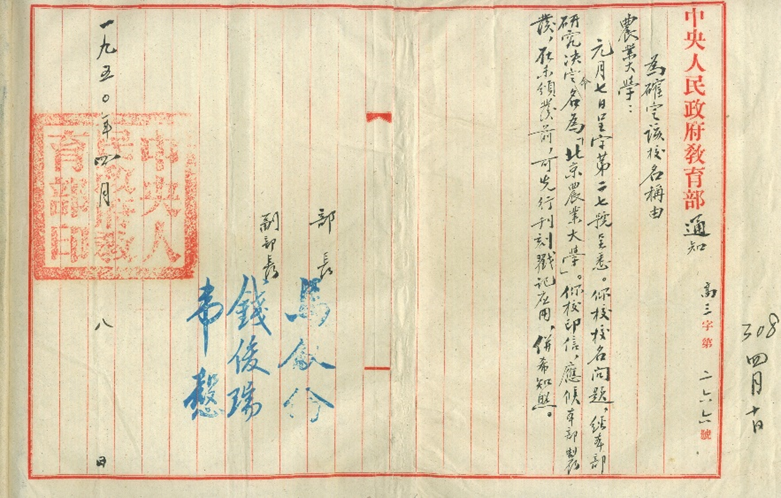 308 四月十日
中央人民政府教育部通知 高三字第二六六號
為確定該校名稱由
農業大學：
元月七日呈字第二七號呈悉。你校校名問題，經本部
研究决定命名為「北京農業大學」。你校印信，應候本部製
發，在未領發前，可先行刊刻戳記应用，併希知照。
部長 馬叙倫
副部長 錢俊瑞
韋慤
一九五〇年四月八日
中央人
民政府教
育部印